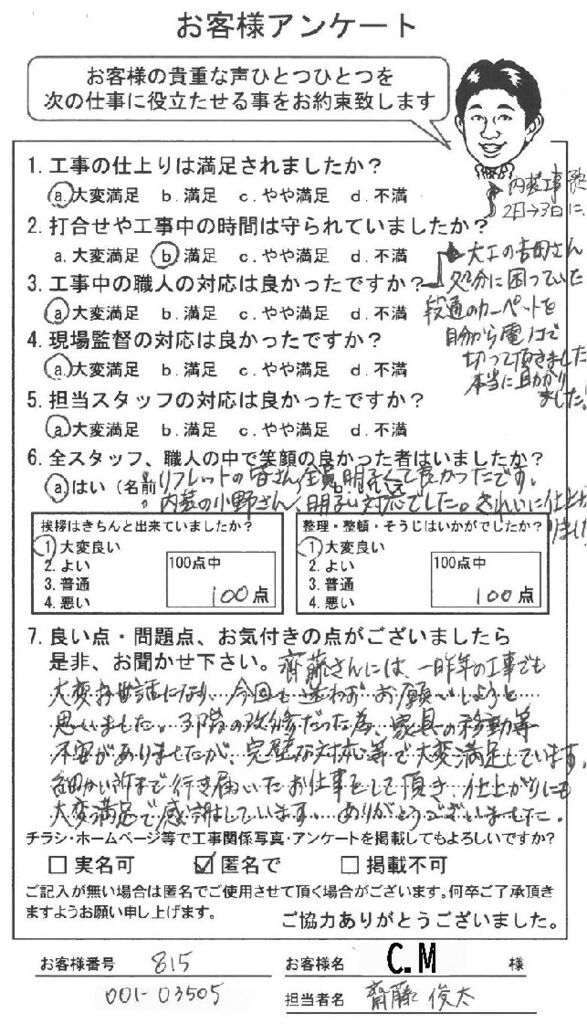 お客様アンケート
お客様の貴重な声ひとつひとつを
次の仕事に役立たせる事をお約束致します
1. 工事の仕上りは満足されましたか？
a. 大変満足 b. 満足 c. やや満足 d. 不満
内装工事
2日→3日に
2. 打合せや工事中の時間は守られていましたか？
a. 大変満足 b. 満足 c. やや満足 d. 不満
3. 工事中の職人の対応は良かったですか？
a. 大変満足 b. 満足 c. やや満足 d. 不満
大工の吉田さん
処分に困っていた
段通のカーペットを
自分から電ノコで
切って頂きました
本当に助かり
ました!
4. 現場監督の対応は良かったですか？
a. 大変満足 b. 満足 c. やや満足 d. 不満
5. 担当スタッフの対応は良かったですか？
a. 大変満足 b. 満足 c. やや満足 d. 不満
6. 全スタッフ、職人の中で笑顔の良かった者はいましたか？
リフレットの皆さん全員明るくて良かったです。
a. はい（名前
内装の小野さん 明るい対応でした。きれいに仕上が
りました
挨拶はきちんと出来ていましたか？
1. 大変良い
2. よい
3. 普通
4. 悪い
100点中
100点
整理・整頓・そうじはいかがでしたか？
1. 大変良い
2. よい
3. 普通
4. 悪い
100点中
100点
7. 良い点・問題点、お気付きの点がございましたら
是非、お聞かせ下さい。齊藤さんには、一昨年の工事でも
大変お世話になり、今回も迷わずお願いしようと
思いました。3階の改修だった為、家具の移動等
不安がありましたが、完璧な対応等で大変満足しています。
細かい所まで行き届いたお仕事をして頂き、仕上がりにも
大変満足で感謝しています。ありがとうございました。
チラシ・ホームページ等で工事関係写真・アンケートを掲載してもよろしいですか？
□ 実名可 ☑ 匿名で □ 掲載不可
ご記入が無い場合は匿名でご使用させて頂く場合がございます。何卒ご了承頂き
ますようお願い申し上げます。
ご協力ありがとうございました。
お客様番号 815
001-03505
お客様名 C.M 様
担当者名 齊藤 俊太